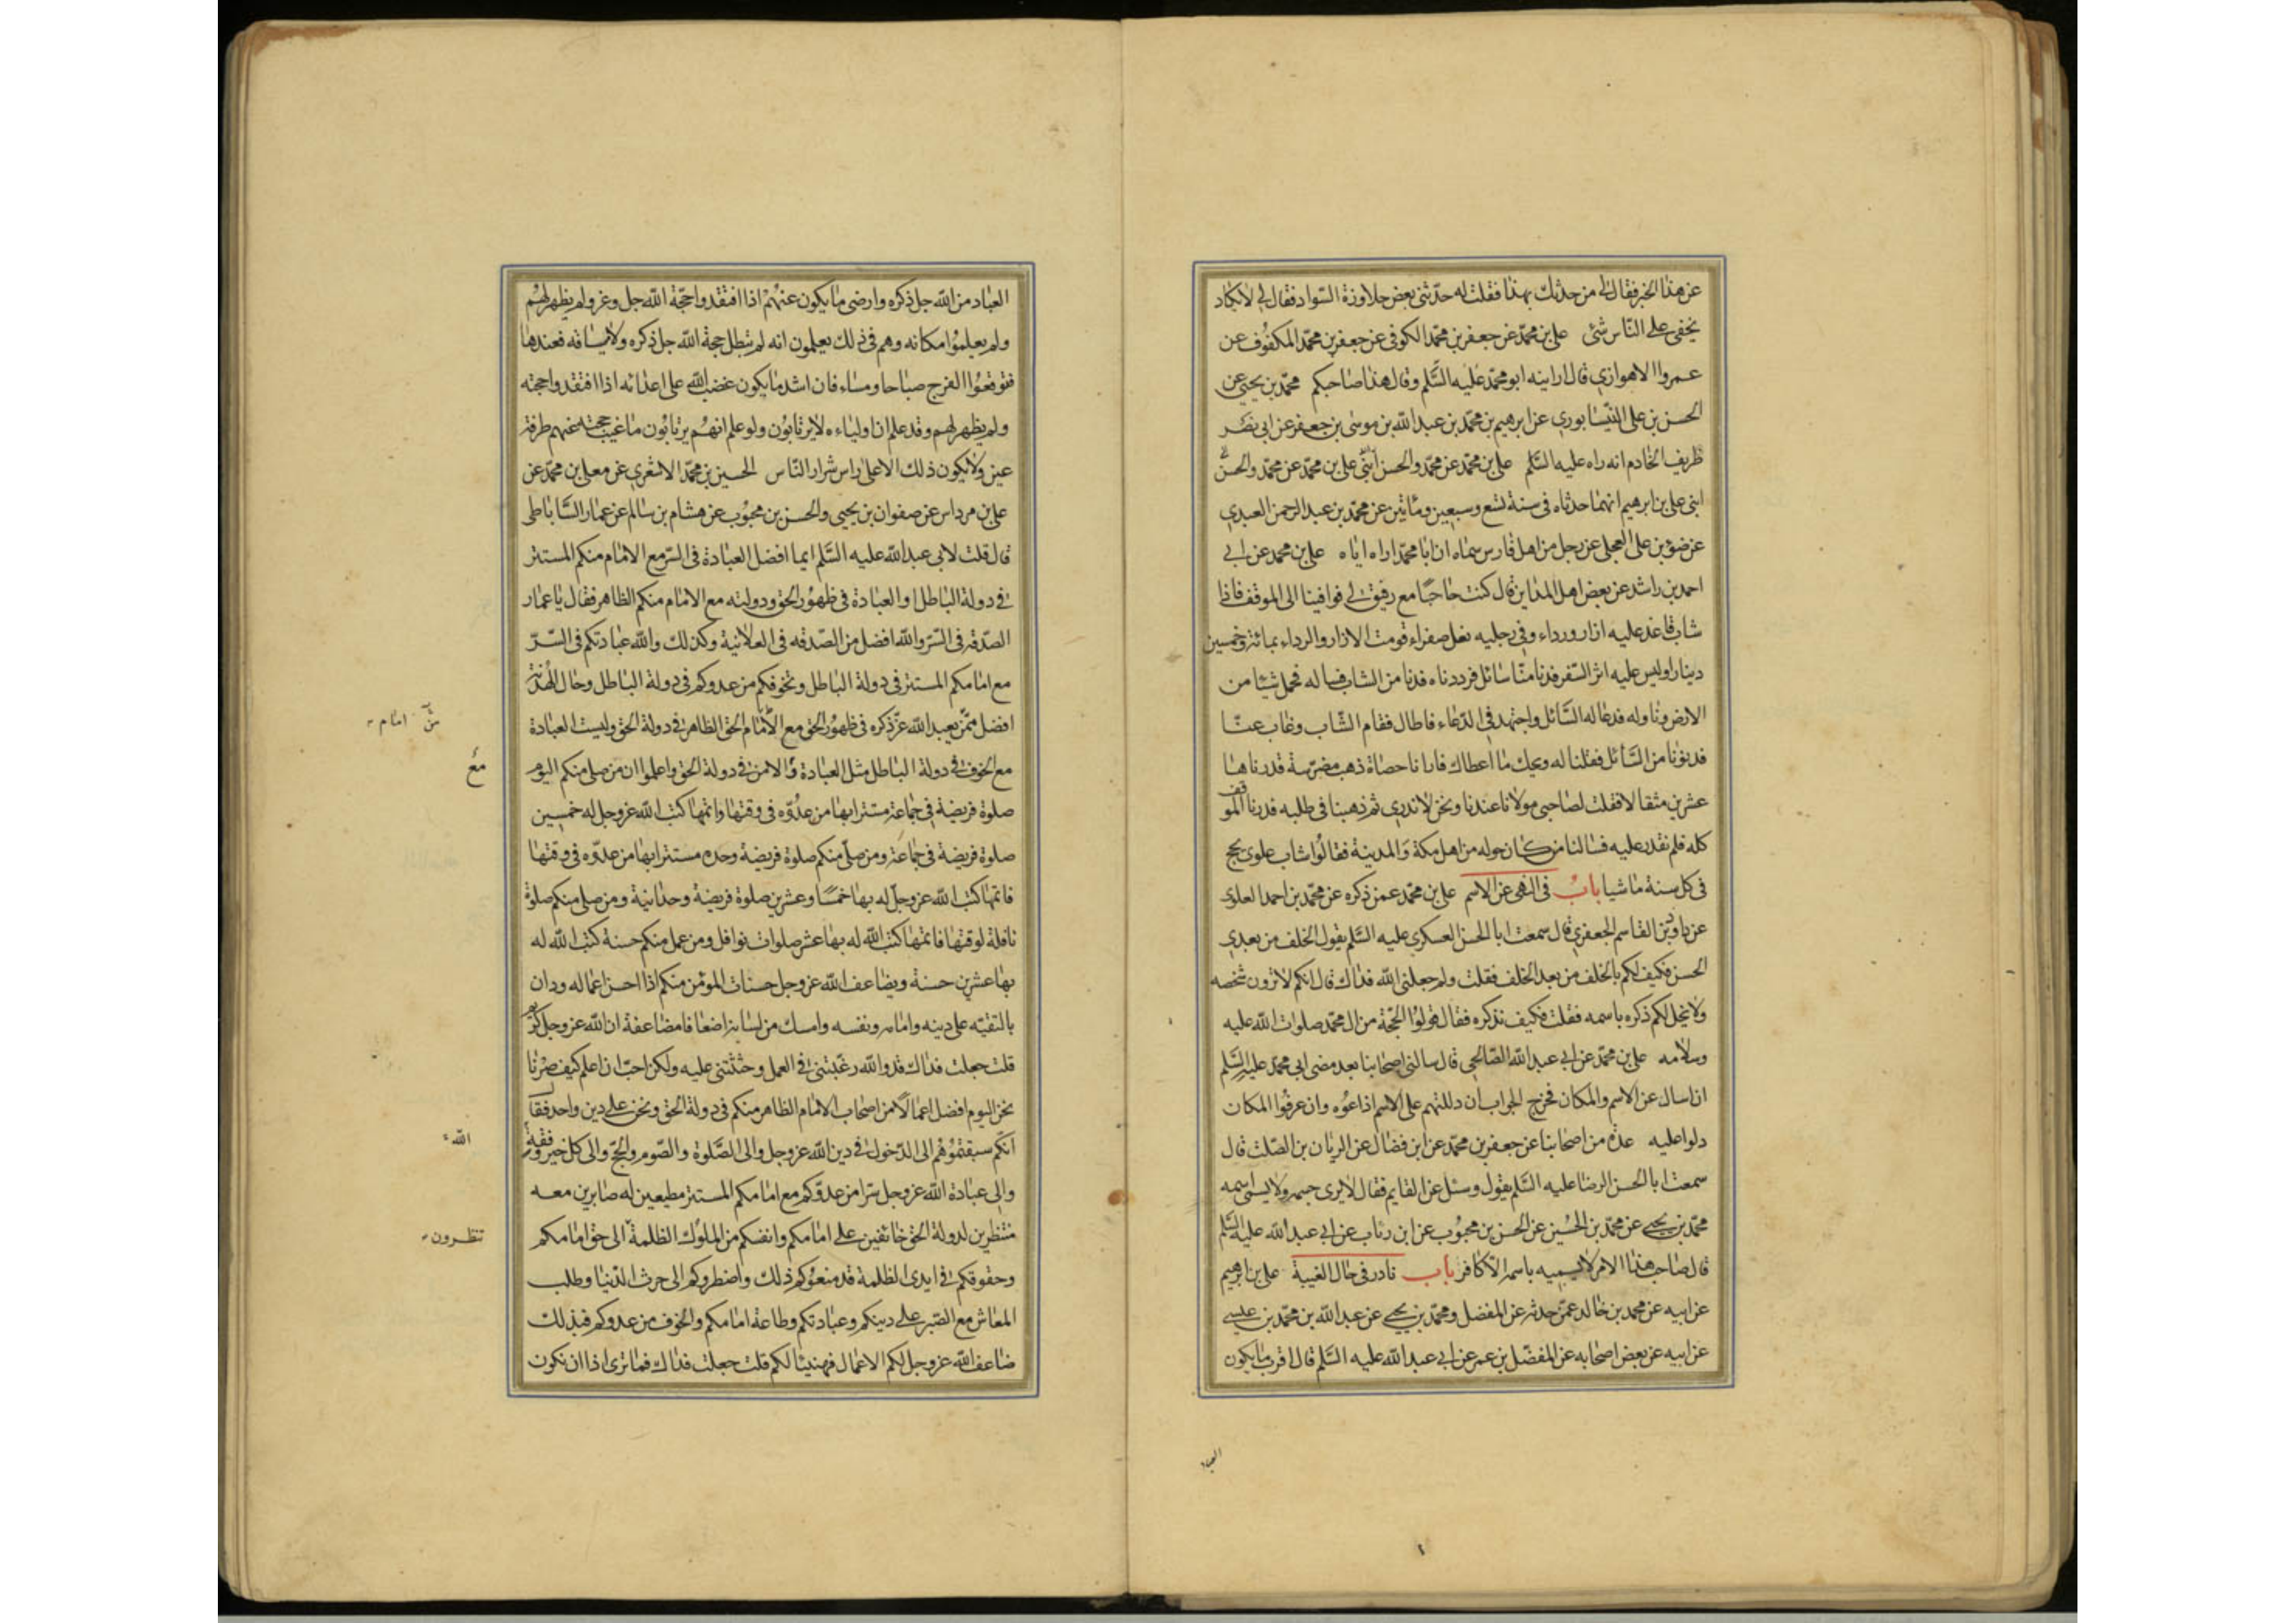 عن هذا الخبر فقال لى من حدثك بهذا فقلت له حدّثنى بعض جلاوزة السّواد فقال لى لا يكاد
يخفى على النّاس شئ على بن محمّد عن جعفر بن محمّد الكوفى عن جعفر بن محمّد المكفُوف عن
عمرو الاهوازى قال ارانيه ابو محمّد عليه السَّلم وقال هذا صاحبكم محمّد بن يحيى عن
الحسن بن على النّيسابورى عن ابرهيم بن محمّد بن عبد الله بن موسى بن جعفر عن ابى نصر
ظريف الخادم انه راه عليه السَّلم على بن محمّد عن محمّد والحسن ابنى على بن محمّد عن محمّد والحسن
ابنى على بن ابرهيم انهما حدثاه فى سنة تسع وسبعين ومأتين عن محمّد بن عبد الرحمن العبدى
عن ضوء بن على العجلى عن رجل من اهل فارس سماه ان ابا محمّد اراه اياه على بن محمد عن ابى
احمد بن راشد عن بعض اهل المداين قال كنت حاجّا مع رفيق لى فوافينا الى الموقف فاذا
شاب قاعد عليه ازار ورداء وفى رجليه نعل صفراء قومت الازار والرداء بمائة وخمسين
دينارا وليس عليه اثر السّفر فدنا منّا سائل فرددناه فدنا من الشاب فساله فحمل شيئا من
الارض وناوله فدعا له السّائل واجتهد فى الدّعاء فاطال فقام الشّاب وغاب عنّا
فدنونا من السّائل فقلنا له ويحك ما اعطاك فارانا حصاة ذهب مضرّسة قدرناها
عشرين مثقالا فقلت لصاحبى مولانا عندنا ونحن لا ندرى ثم ذهبنا فى طلبه فدرنا الموقف
كله فلم نقدر عليه فسالنا من كان حوله من اهل مكة والمدينة فقالوا شاب علوى يحج
فى كل سنة ماشيا بابُ فى النهى عن الاسم على بن محمّد عمن ذكره عن محمّد بن احمد العلوى
عن داود بن القاسم الجعفرى قال سمعت ابا الحسن العسكرى عليه السَّلم يقول الخلف من بعدى
الحسن فكيف لكم بالخلف من بعد الخلف فقلت ولم جعلنى الله فداك قال انكم لا ترون شخصه
ولا يحل لكم ذكره باسمه فقلت فكيف نذكره فقال قولُوا الحجّة من ال محمّد صلوات الله عليه
وسلامه على بن محمّد عن ابى عبد الله الصّالحى قال سالنى اصحابنا بعد مضى ابى محمّد عليه السَّلم
ان اسال عن الاسم والمكان فخرج الجواب ان دللتهم على الاسم اذاعوه وان عرفُوا المكان
دلوا عليه عدّة من اصحابنا عن جعفر بن محمّد عن ابن فضال عن الريان بن الصّلت قال
سمعت ابا الحسن الرضا عليه السَّلم يقول وسئل عن القايم فقال لا يرى جسمه ولا يسمى اسمه
محمّد بن يحيى عن محمّد بن الحُسين عن الحسن بن محبُوب عن ابن رئاب عن ابى عبد الله عليه السَّلم
قال صاحب هذا الامر لا يسميه باسمه الّا كافر باب نادر فى حال الغيبة على بن ابرهيم
عن ابيه عن محمد بن خالد عمّن حدثه عن المفضل ومحمّد بن يحيى عن عبد الله بن محمّد بن عيسى
عن ابيه عن بعض اصحابه عن المفضّل بن عمر عن ابى عبد الله عليه السَّلم قال اقرب ما يكون
العباد
العباد من الله جل ذكره وارضى ما يكون عنهُمْ اذا افتقدوا حجّة الله جل وعز ولم يظهر لهُم
ولم يعلمُوا مكانه وهم فى ذلك يعلمون انه لم تبطل حجة الله جل ذكره ولا ميثاقه فعندها
فتوقعُوا الفرج صباحا ومساء فان اشد ما يكون غضب الله على اعدائه اذا افتقدوا حجته
ولم يظهر لهم وقد علم ان اولياءه لا يرتابُون ولو علم انهُم يرتابُون ما غيب حجته عنهم طرفة
عين ولا يكون ذلك الا على راس شرار النّاس الحسين بن محمّد الاشعرى عن معلى بن محمّد عن
على بن مرداس عن صفوان بن يحيى والحُسن بن محبُوب عن هشام بن سالم عن عمار السَّاباطى
قال قلت لابى عبد الله عليه السَّلم ايما افضل العبادة فى السّر مع الامام منكم المستتر
فى دولة الباطل او العبادة فى ظهُور الحق ودولته مع الامام منكم الظاهر فقال يا عمار
الصّدقه فى السّر والله افضل من الصّدقه فى العلانية وكذلك والله عبادتكم فى السّرّ
مع امامكم المستتر فى دولة الباطل وتخوفكم من عدوكم فى دولة الباطل وحال الهُدنة
افضل ممّن يعبد الله عزّ ذكره فى ظهُور الحق مع الأمام الحق الظاهر فى دولة الحق وليست العبادة
مع الخوف فى دولة الباطل مثل العبادة والامن فى دولة الحق واعلموا ان من صلى منكم اليوم
صلوة فريضة فى جماعة مستترا بها من عدُوّه فى وقتها واتمها كتب الله عز وجل له خمسين
صلوة فريضة فى جماعة ومن صلّى منكم صلوة فريضة وحده مستترا بها من عدوّه فى وقتها
فاتمها كتب الله عز وجلّ له بها خمسًا وعشرين صلوة فريضة وحدانية ومن صلى منكم صلوة
نافلة لوقتها فاتمها كتب الله له بها عشر صلوات نوافل ومن عمل منكم حسنة كتب الله له
بها عشرين حسنة ويضاعف الله عز وجل حسنات المؤمن منكم اذا احسن اعماله ودان
بالتقيّه على دينه وامامه ونفسه وامسك من لسانه اضعافا مضاعفة ان الله عز وجل كريم
قلت جعلت فداك قد والله رغّبتنى فى العمل وحثثتنى عليه ولكن احبّ ان اعلم كيف صرْنا
نحن اليوم افضل اعمالًا من اصحاب الامام الظاهر منكم فى دولة الحق ونحن على دين واحد فقال
انّكم سبقتمُوهُم الى الدّخول فى دين الله عز وجل والى الصَّلوة والصّوم والحجّ والى كل خير وفقه
والى عبادة الله عز وجل سّرا من عدوّكم مع امامكم المستتر مطيعين له صابرين معه
منتظرين لدولة الحق خائفين على امامكم وانفسكم من الملُوك الظلمة الى حق امامكم
وحقوقكم فى ايدى الظلمة قد منعوُكم ذلك واضطروكم الى حرث الدّنيا وطلب
المعاش مع الصّبر على دينكم وعبادتكم وطاعة امامكم والخوف من عدوكم فبذلك
ضاعف الله عز وجل لكم الاعمال فهنيئا لكم قلت جعلت فداك فما ترى اذا ان نكون
امام
مع
الله
تنظرون